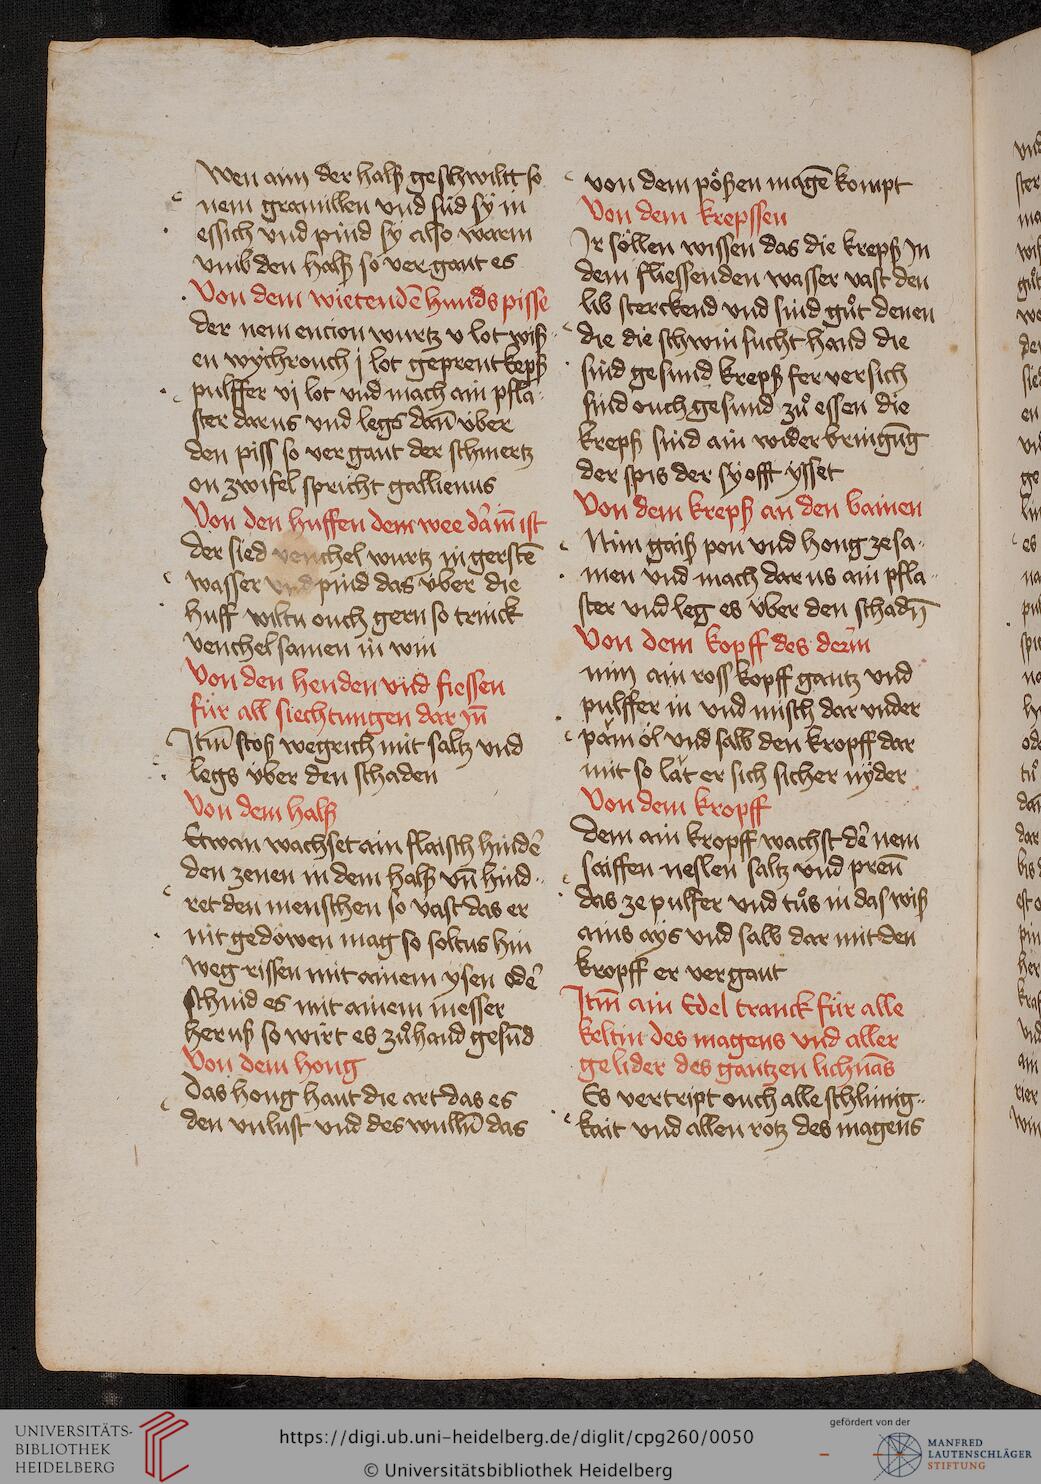 Wen aim der halß geschwiltt so
nem gramillen vnd süd sy in
essich vnd pind sy also warm
vmb den halß so vergaut es
Von dem wietendē hunds pisse
der nem encion wurtz v lot wiß
en wÿchrouch j lot geprent kepß
pulffer vj lot vnd mach ain pfla
ster darus vnd legs dañ über
den piss so vergaut der schmertz
on zwifel spricht gallienus
Von den huffen dem wee dar īn ist
der sied venchel wurtz in gerstē
wasser vnd pind das über die
huff wiltu ouch gern so trinck
venchel samen in win
Von den henden vnd fiessen
für all siechtungen dar jn̄
Itm̄ stoß wegrich mit saltz vnd
legs über den schaden
Von dem halß
Etwan wachset ain flaisch hindē
den zenen in dem halß vn̄ hind
ret den menschen so vast das er
nit gedöwen mag so soltus hin
weg rissen mit ainem ysen odē
schnid es mit ainem messer
heruß so wirt es zůhand gesūd
Von dem hong
Das hong haut die art das es
den vnlust vnd des wullñ das
von dem pößen magē kompt
Von dem krepssen
Ir söllen wissen das die krepß jn
dem fliessenden wasser vast den
lib sterckend vnd sind gůt denen
die die schwinsucht hand die
sind gesund krepß fer versich
sind ouch gesund zů essen die
krepß sind ain widerbringūg
der spis der sy offt ysset
Von dem krepß an den bainen
Nim gaiß pon vnd hong zesa
men vnd mach dar us ain pfla
ster vnd leg es über den schadn̄
Von dem kopff des
nim ain ross kopff gantz vnd
pulffer in vnd misch dar vnder
päm öl vnd salb den kropff dar
mit so lät er sich sicher nÿder
Von dem kropff
Dem ain kropff wachst dē nem
saiffen neslen saltz vnd pren̄
das ze pulfer vnd tůs in das wiß
ains ays vnd salb dar mit den
kropff er vergaut
Itm̄ ain Edel tranck für alle
keltin des magens vnd aller
gelider des gantzen lichnās
Es vertript ouch alle schlimig
kait vnd allen rotz des magens
UNIVERSITÄTS-
BIBLIOTHEK
HEIDELBERG
https://digi.ub.uni-heidelberg.de/diglit/cpg260/0050
© Universitätsbibliothek Heidelberg
gefördert von der
MANFRED
LAUTENSCHLÄGER
STIFTUNG